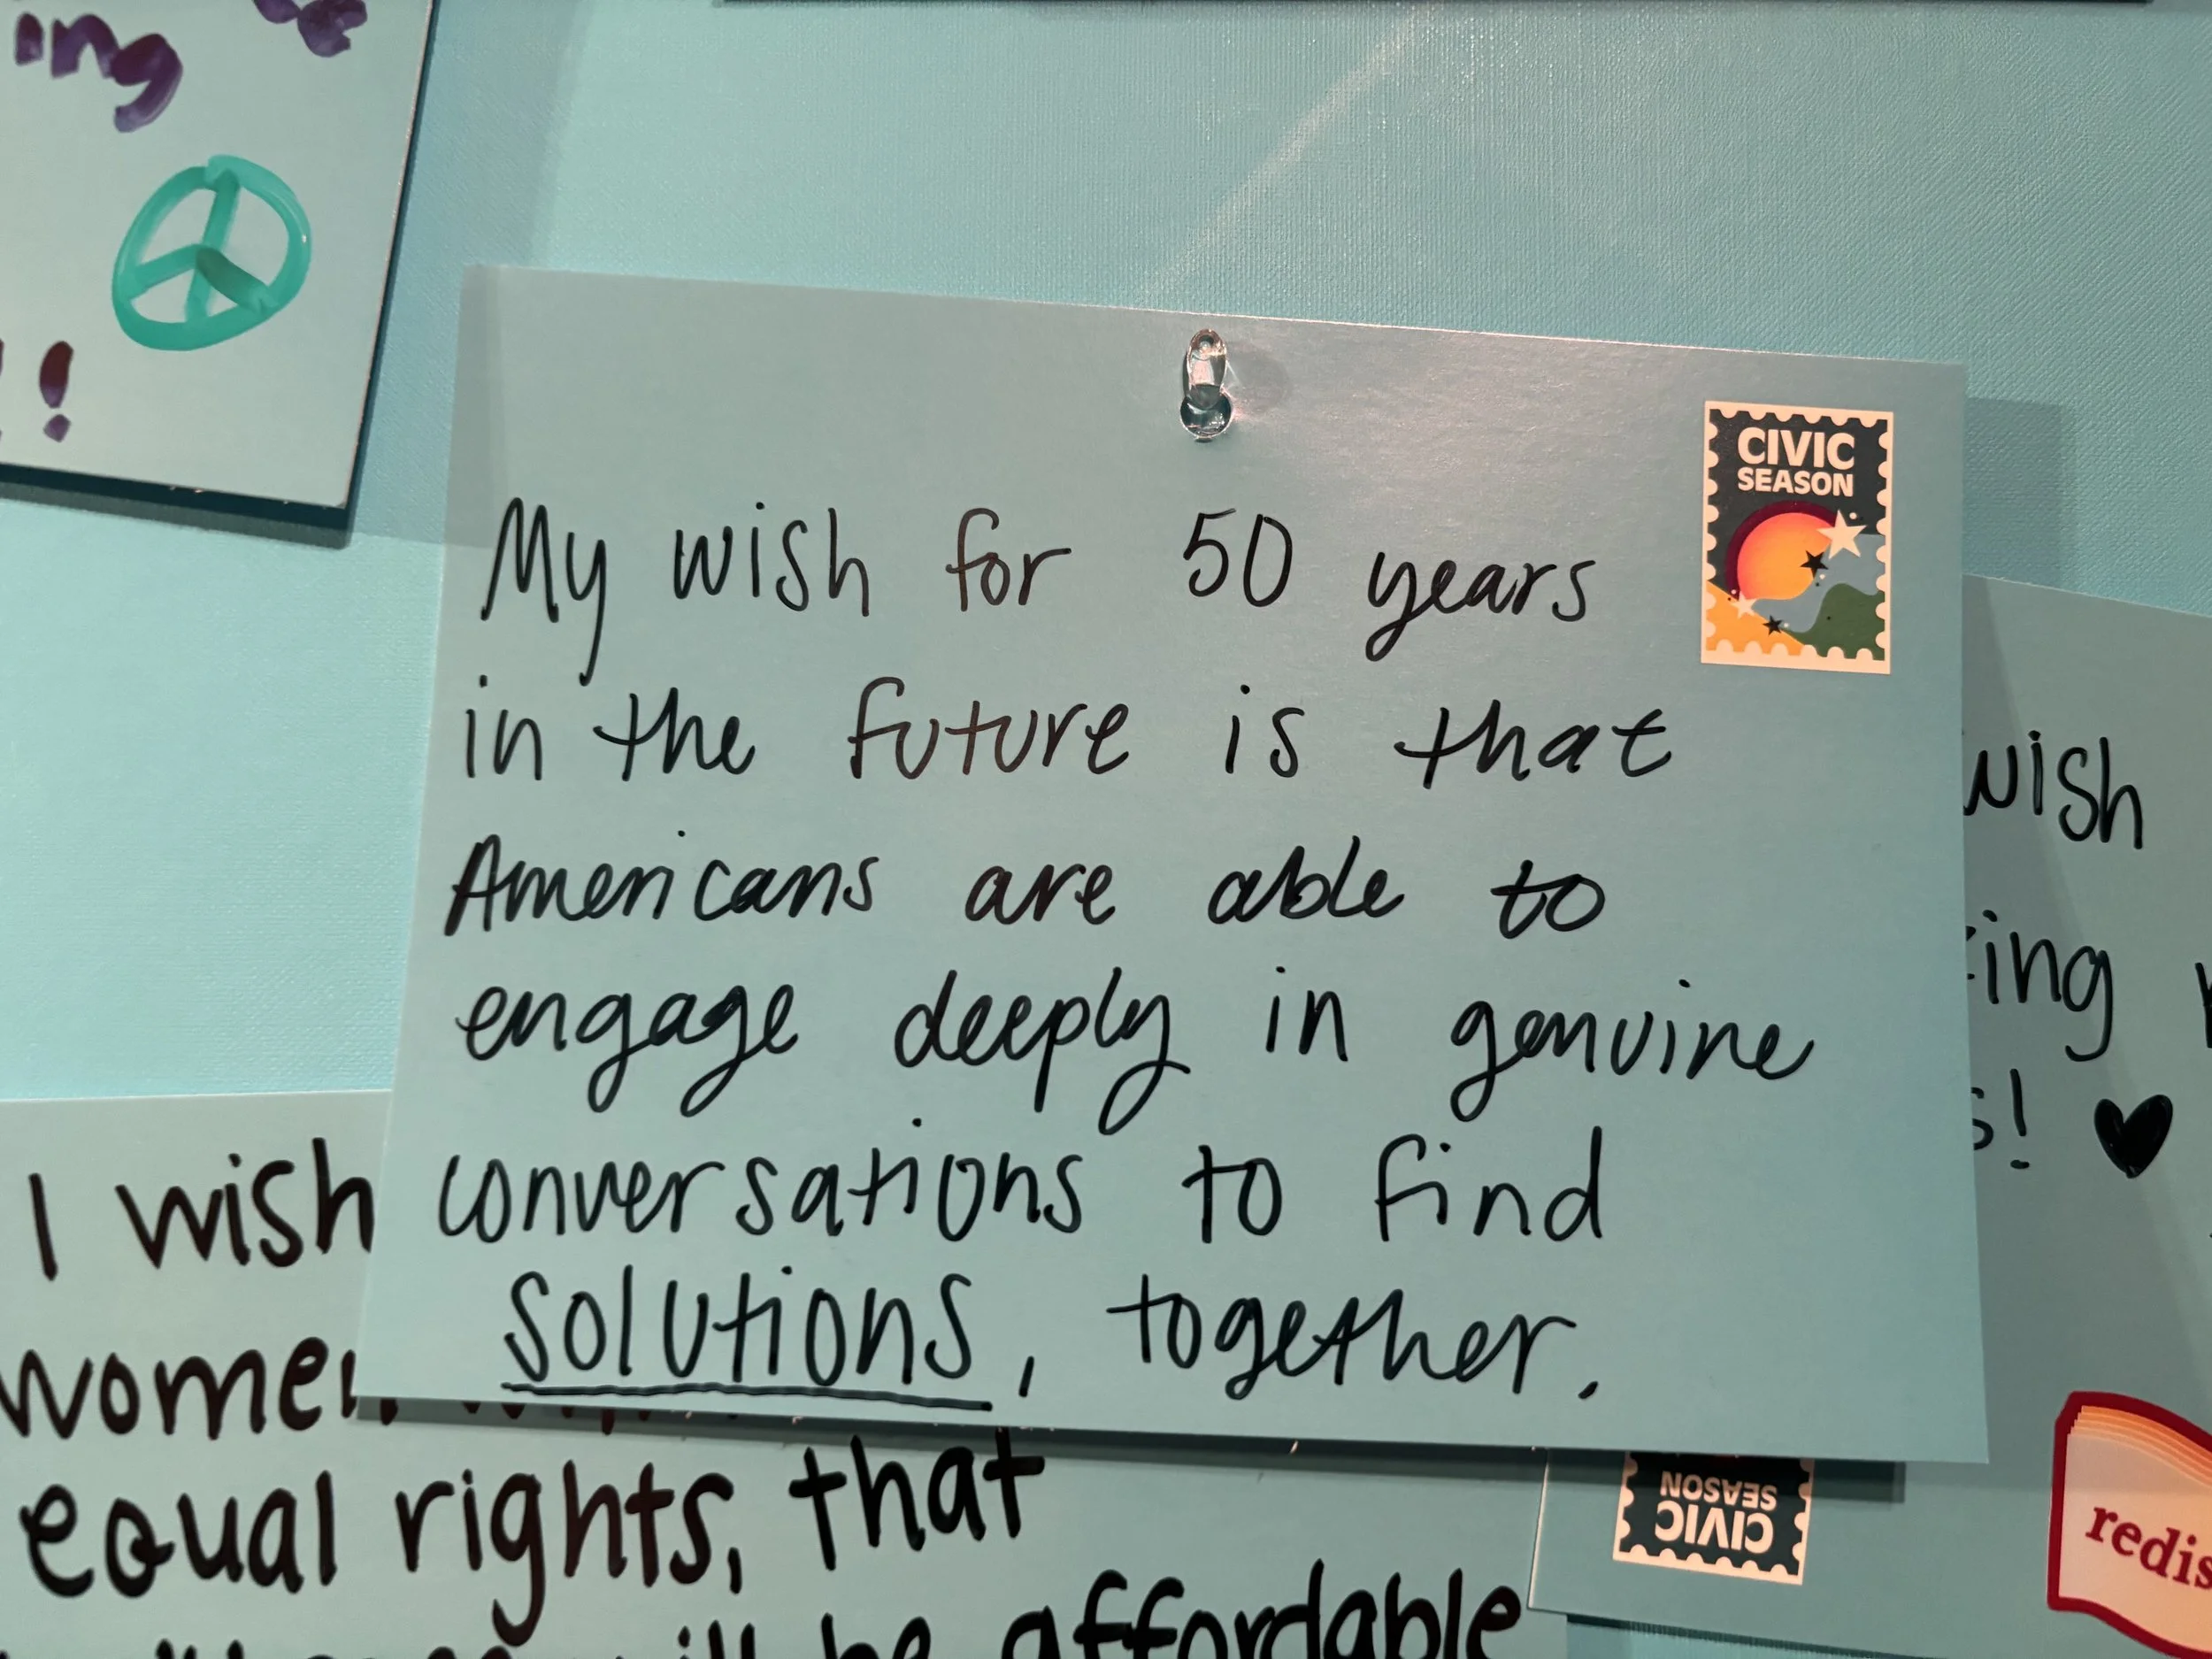 ing
!
CIVIC
SEASON
My wish for 50 years
in the future is that
Americans are able to
engage deeply in genuine
conversations to find
solutions, together.
wish
ing
s! ♥
I wish
women
equal rights, that
will be affordable
CIVIC
SEASON
redis